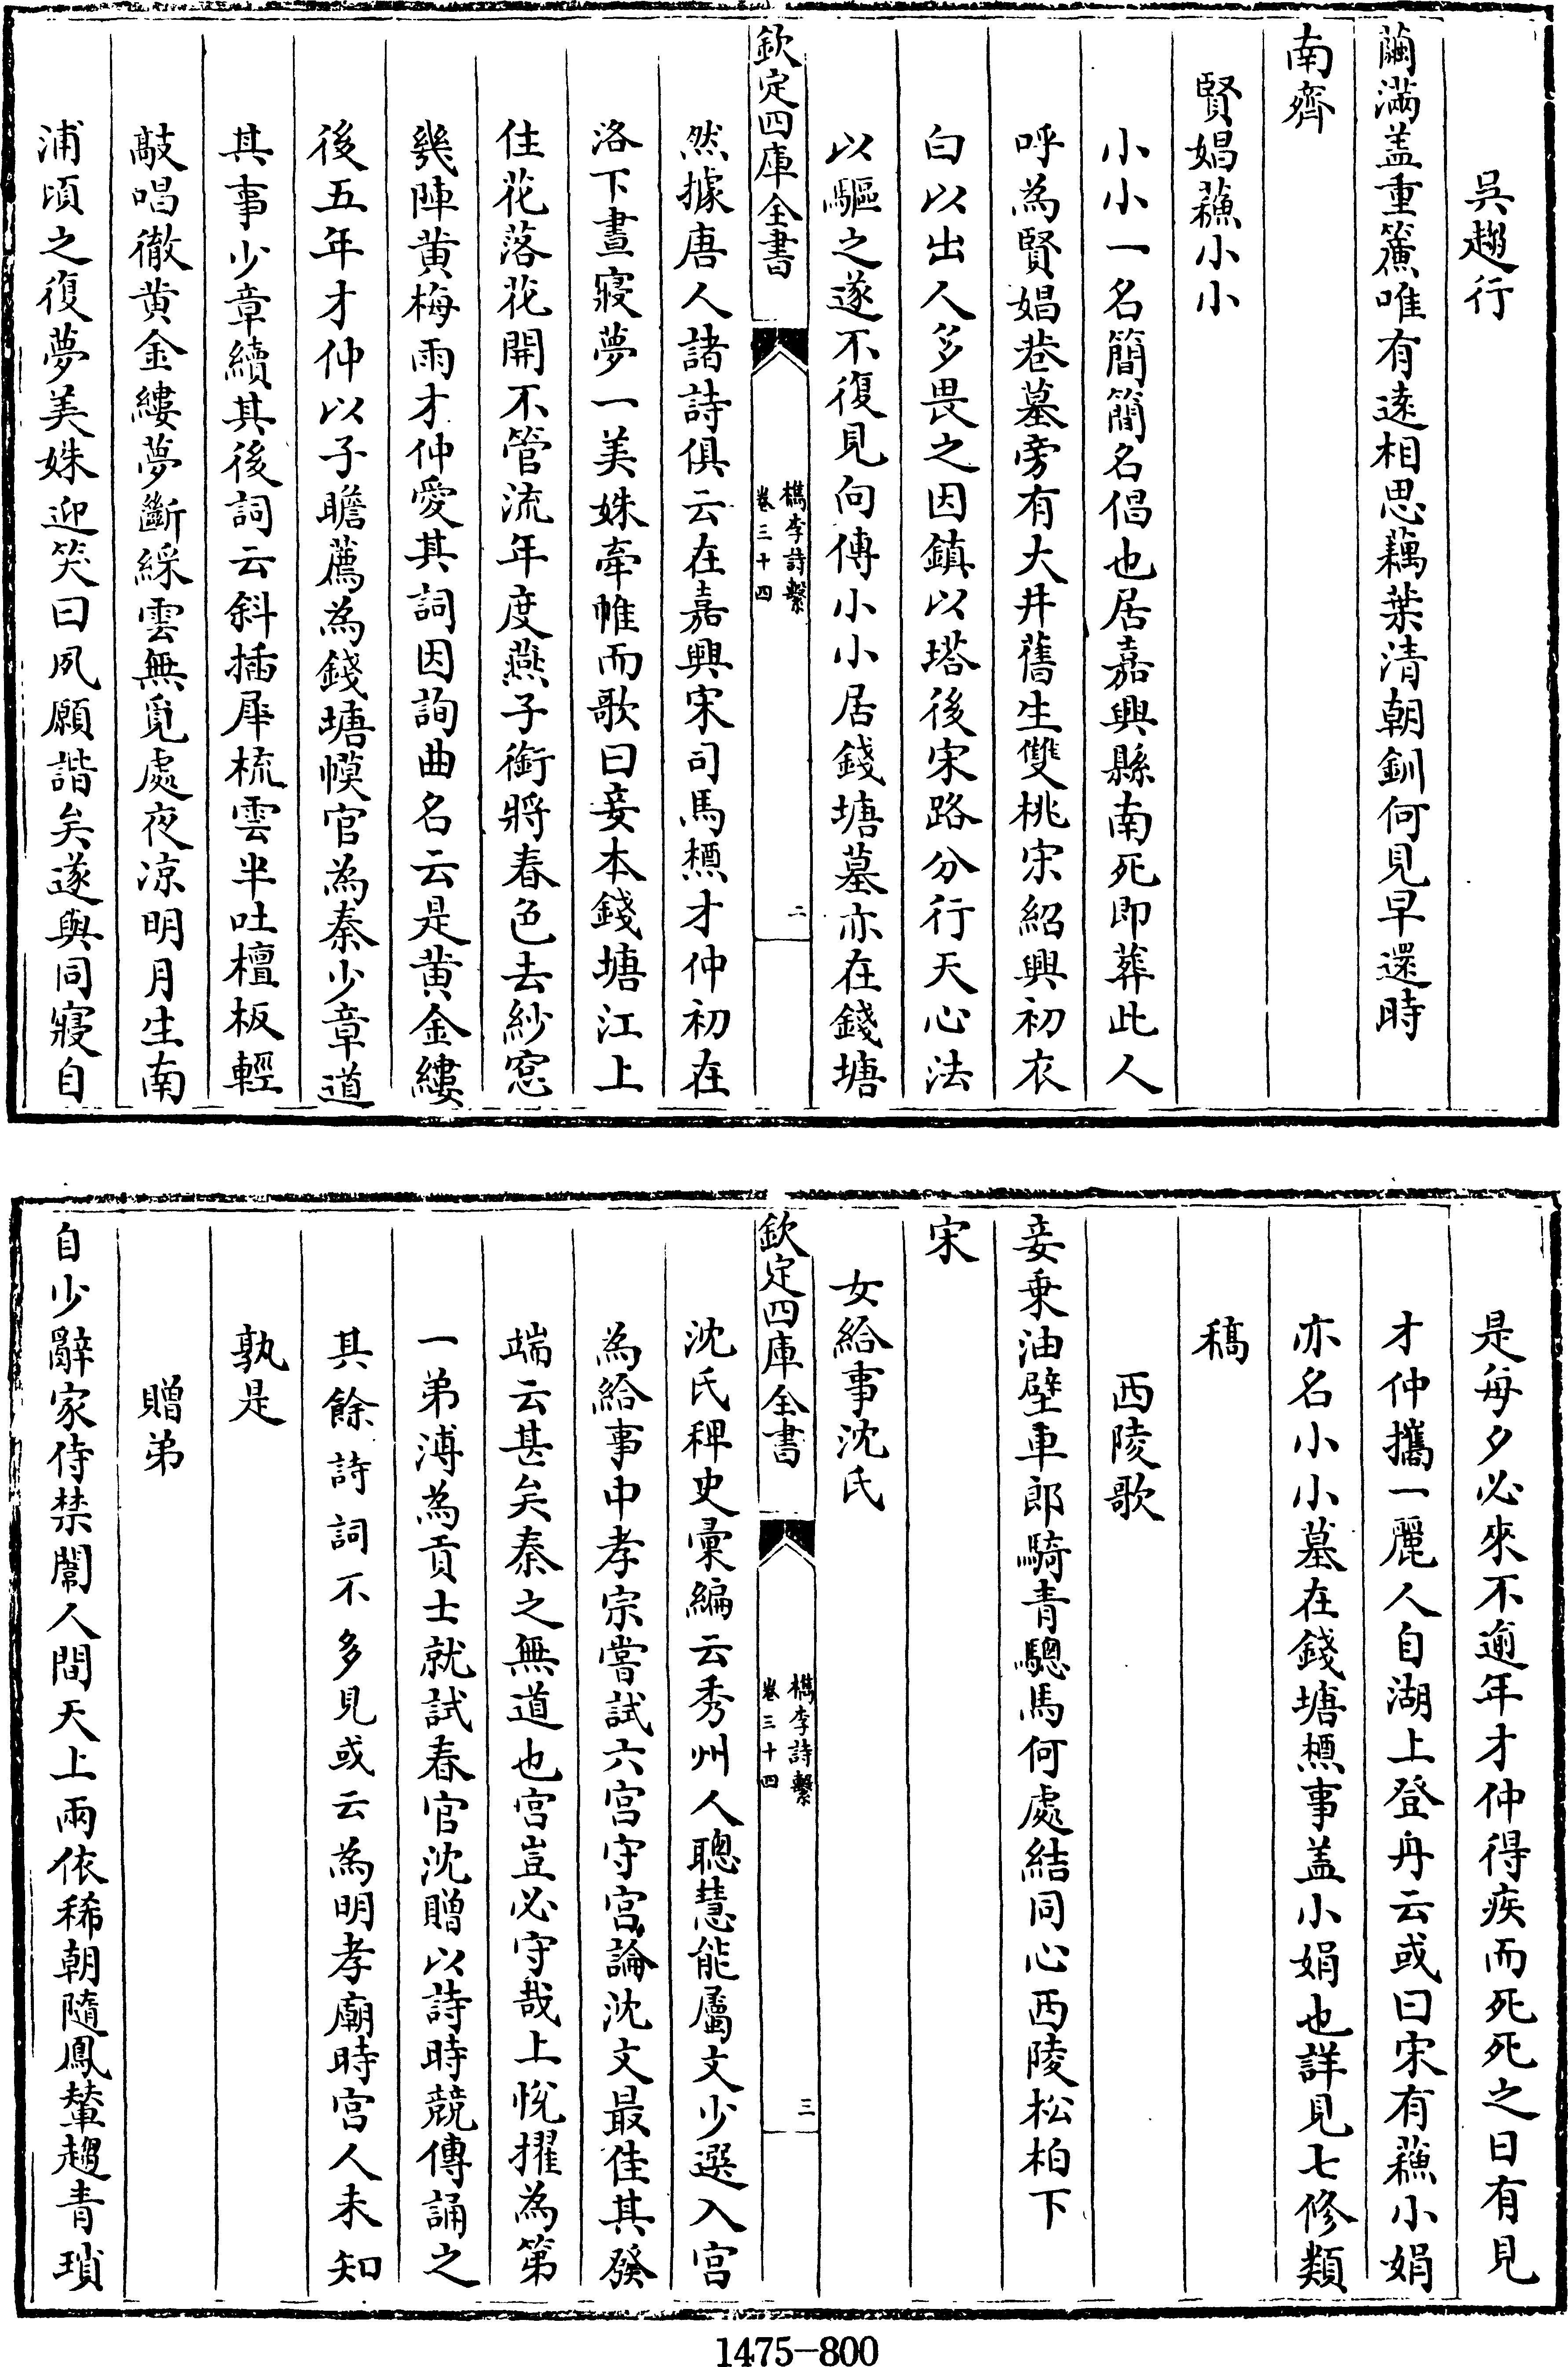 吳趨行
繭滿盖重簾唯有遠相思藕葉清朝釧何見早還時
南齊
賢娼蘓小小
小小一名簡簡名倡也居嘉興縣南死即葬此人
呼為賢娼巷墓旁有大井舊生雙桃宋紹興初衣
白以出人多畏之因鎮以塔後宋路分行天心法
以驅之遂不復見向傳小小居錢塘墓亦在錢塘
欽定四庫全書
檇李詩繫
卷三十四
二
然據唐人諸詩俱云在嘉興宋司馬槱才仲初在
洛下晝寢夢一美姝牽帷而歌曰妾本錢塘江上
住花落花開不管流年度燕子銜將春色去紗窓
幾陣黄梅雨才仲愛其詞因詢曲名云是黄金縷
後五年才仲以子瞻薦為錢塘幙官為秦少章道
其事少章續其後詞云斜插犀梳雲半吐檀板輕
敲唱徹黄金縷夢斷綵雲無覓處夜凉明月生南
浦頃之復夢美姝迎笑曰夙願諧矣遂與同寢自
是每夕必來不逾年才仲得疾而死死之日有見
才仲攜一麗人自湖上登舟云或曰宋有蘓小娟
亦名小小墓在錢塘槱事盖小娟也詳見七修類
稿
西陵歌
妾乗油壁車郎騎青驄馬何處結同心西陵松柏下
宋
女給事沈氏
欽定四庫全書
檇李詩繫
卷三十四
三
沈氏稗史彚編云秀州人聰慧能屬文少選入宫
為給事中孝宗嘗試六宫守宫論沈文最佳其發
端云甚矣秦之無道也宫豈必守哉上悅擢為第
一弟溥為貢士就試春官沈贈以詩時競傳誦之
其餘詩詞不多見或云為明孝廟時宫人未知
孰是
贈弟
自少辭家侍禁闈人間天上兩依稀朝隨鳳輦趨青瑣
1475-800